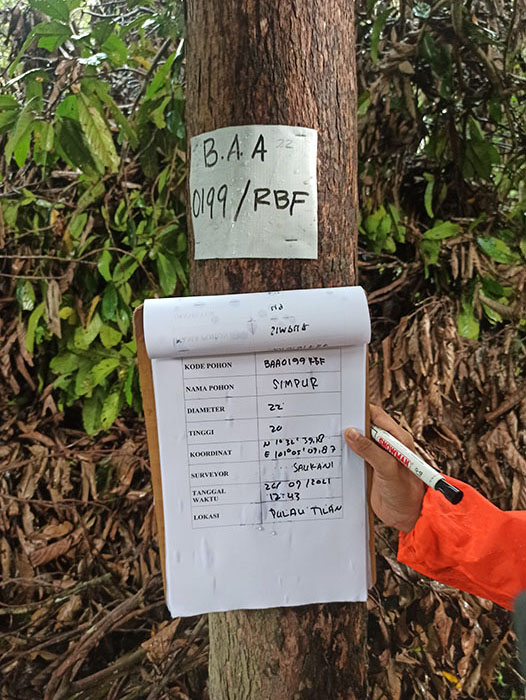 B.A.A 22
0199/RBF
KODE POHON BAA0199 RBF
NAMA POHON SIMPUR
DIAMETER 22
TINGGI 20
KOORDINAT N 1° 32' 39.18
E 101° 05' 09.87
SURVEYOR SAUKANI
TANGGAL 26/09/2021
WAKTU 12:43
LOKASI PULAU TILAN
SNOWMAN